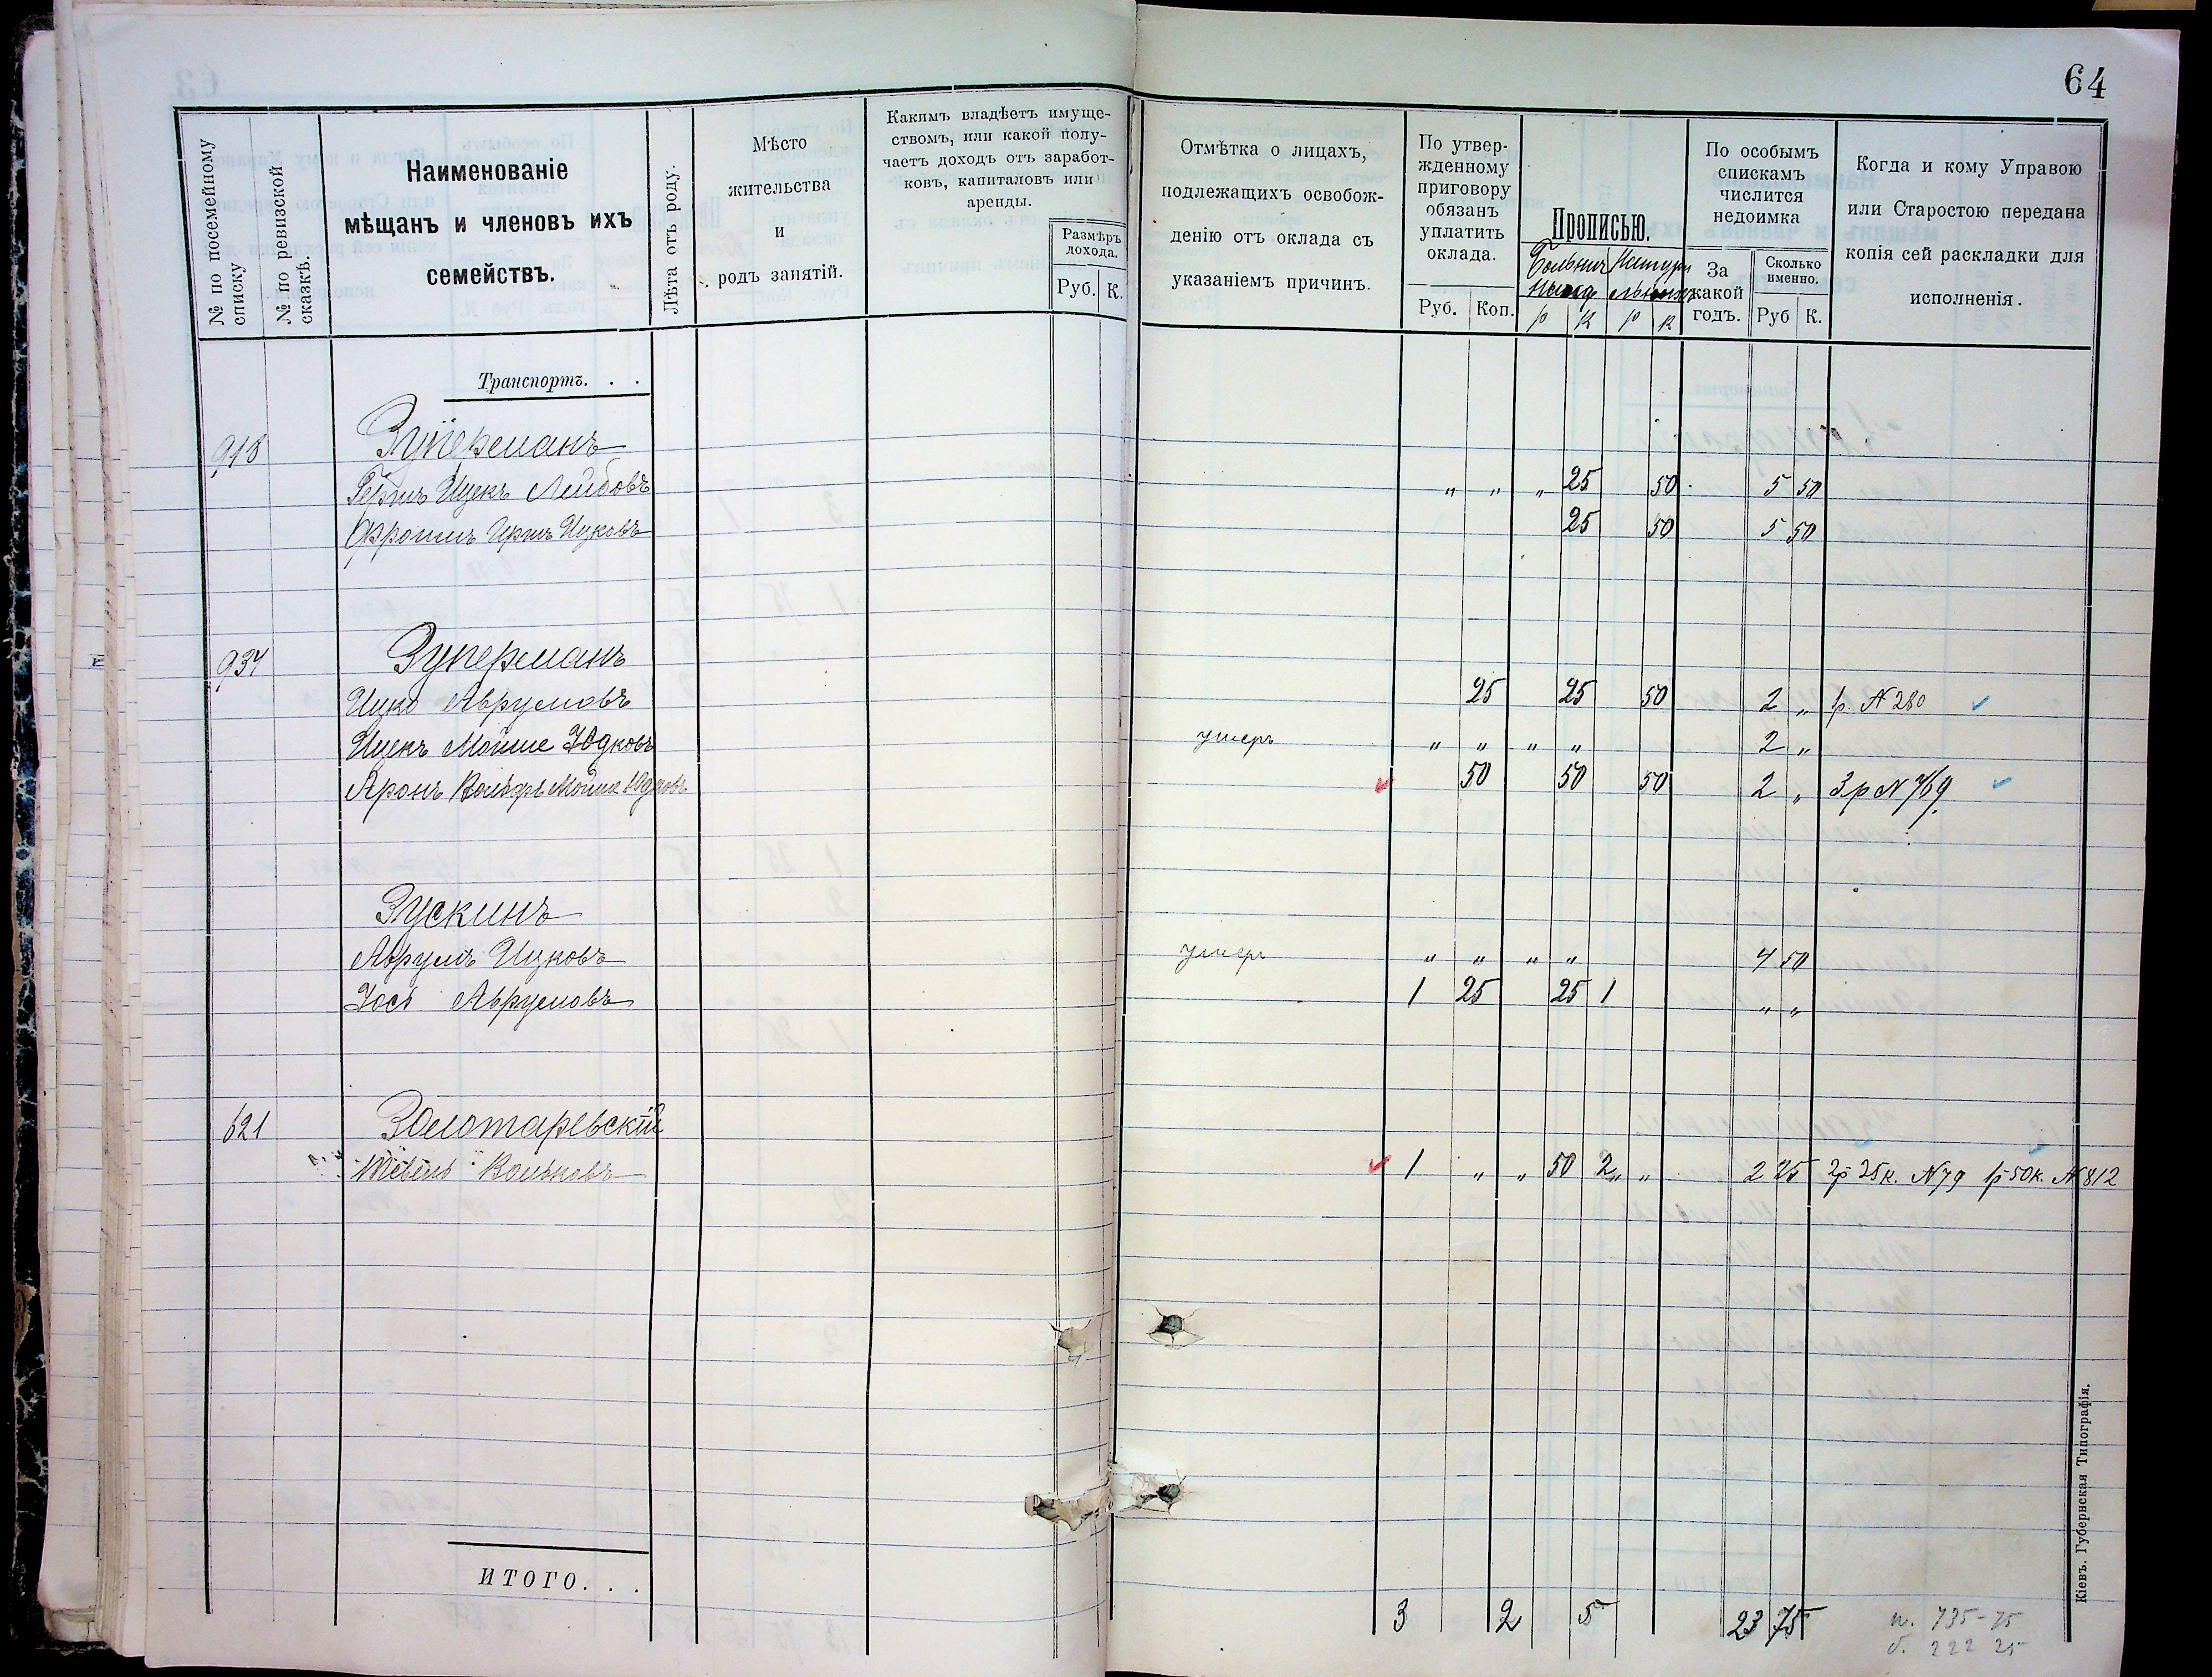 64
№ по посемейному списку
№ по ревизской сказкѣ.
Наименованіе
мѣщанъ и членовъ ихъ
семействъ.
Лѣта отъ роду.
Мѣсто
жительства
и
родъ занятій.
Какимъ владѣетъ имуще-
ствомъ, или какой полу-
чаетъ доходъ отъ заработ-
ковъ, капиталовъ или
аренды.
Размѣръ
дохода.
Руб. К.
Отмѣтка о лицахъ,
подлежащихъ освобож-
денію отъ оклада съ
указаніемъ причинъ.
По утвер-
жденному
приговору
обязанъ
уплатить
оклада.
Руб. Коп.
Прописью.
р к р к
По особымъ
спискамъ
числится
недоимка
За
какой
годъ.
Сколько
именно.
Руб К.
Когда и кому Управою
или Старостою передана
копія сей раскладки для
исполненія.
Транспортъ. . .
918 Зуперманъ
Гершъ Ицекъ Лейбовъ " " " 25 50 5 50
Фроимъ Ицковъ 25 50 5 50
934 Зуперманъ
Ицко Аврумовъ 25 25 50 2 " 1р. N 280
Ицекъ Мойше Юдковъ умеръ " " " " 2 "
Аронъ Вольфъ Мойше Юдковъ 50 50 50 2 " 3р N 769
Зускинъ
Аврумъ Ицковъ умеръ " " " " 4 50
Зось Аврумовъ 1 25 25 1 " "
621 Золотаревскій
Тевель Вольковъ 1 " " 50 2 " " 2 25 2р 25к. N 79 1р 50к. N 812
ИТОГО. . .
3 2 5 23 75
н. 735-75
б. 222 25
Кіевъ. Губернская Типографія.